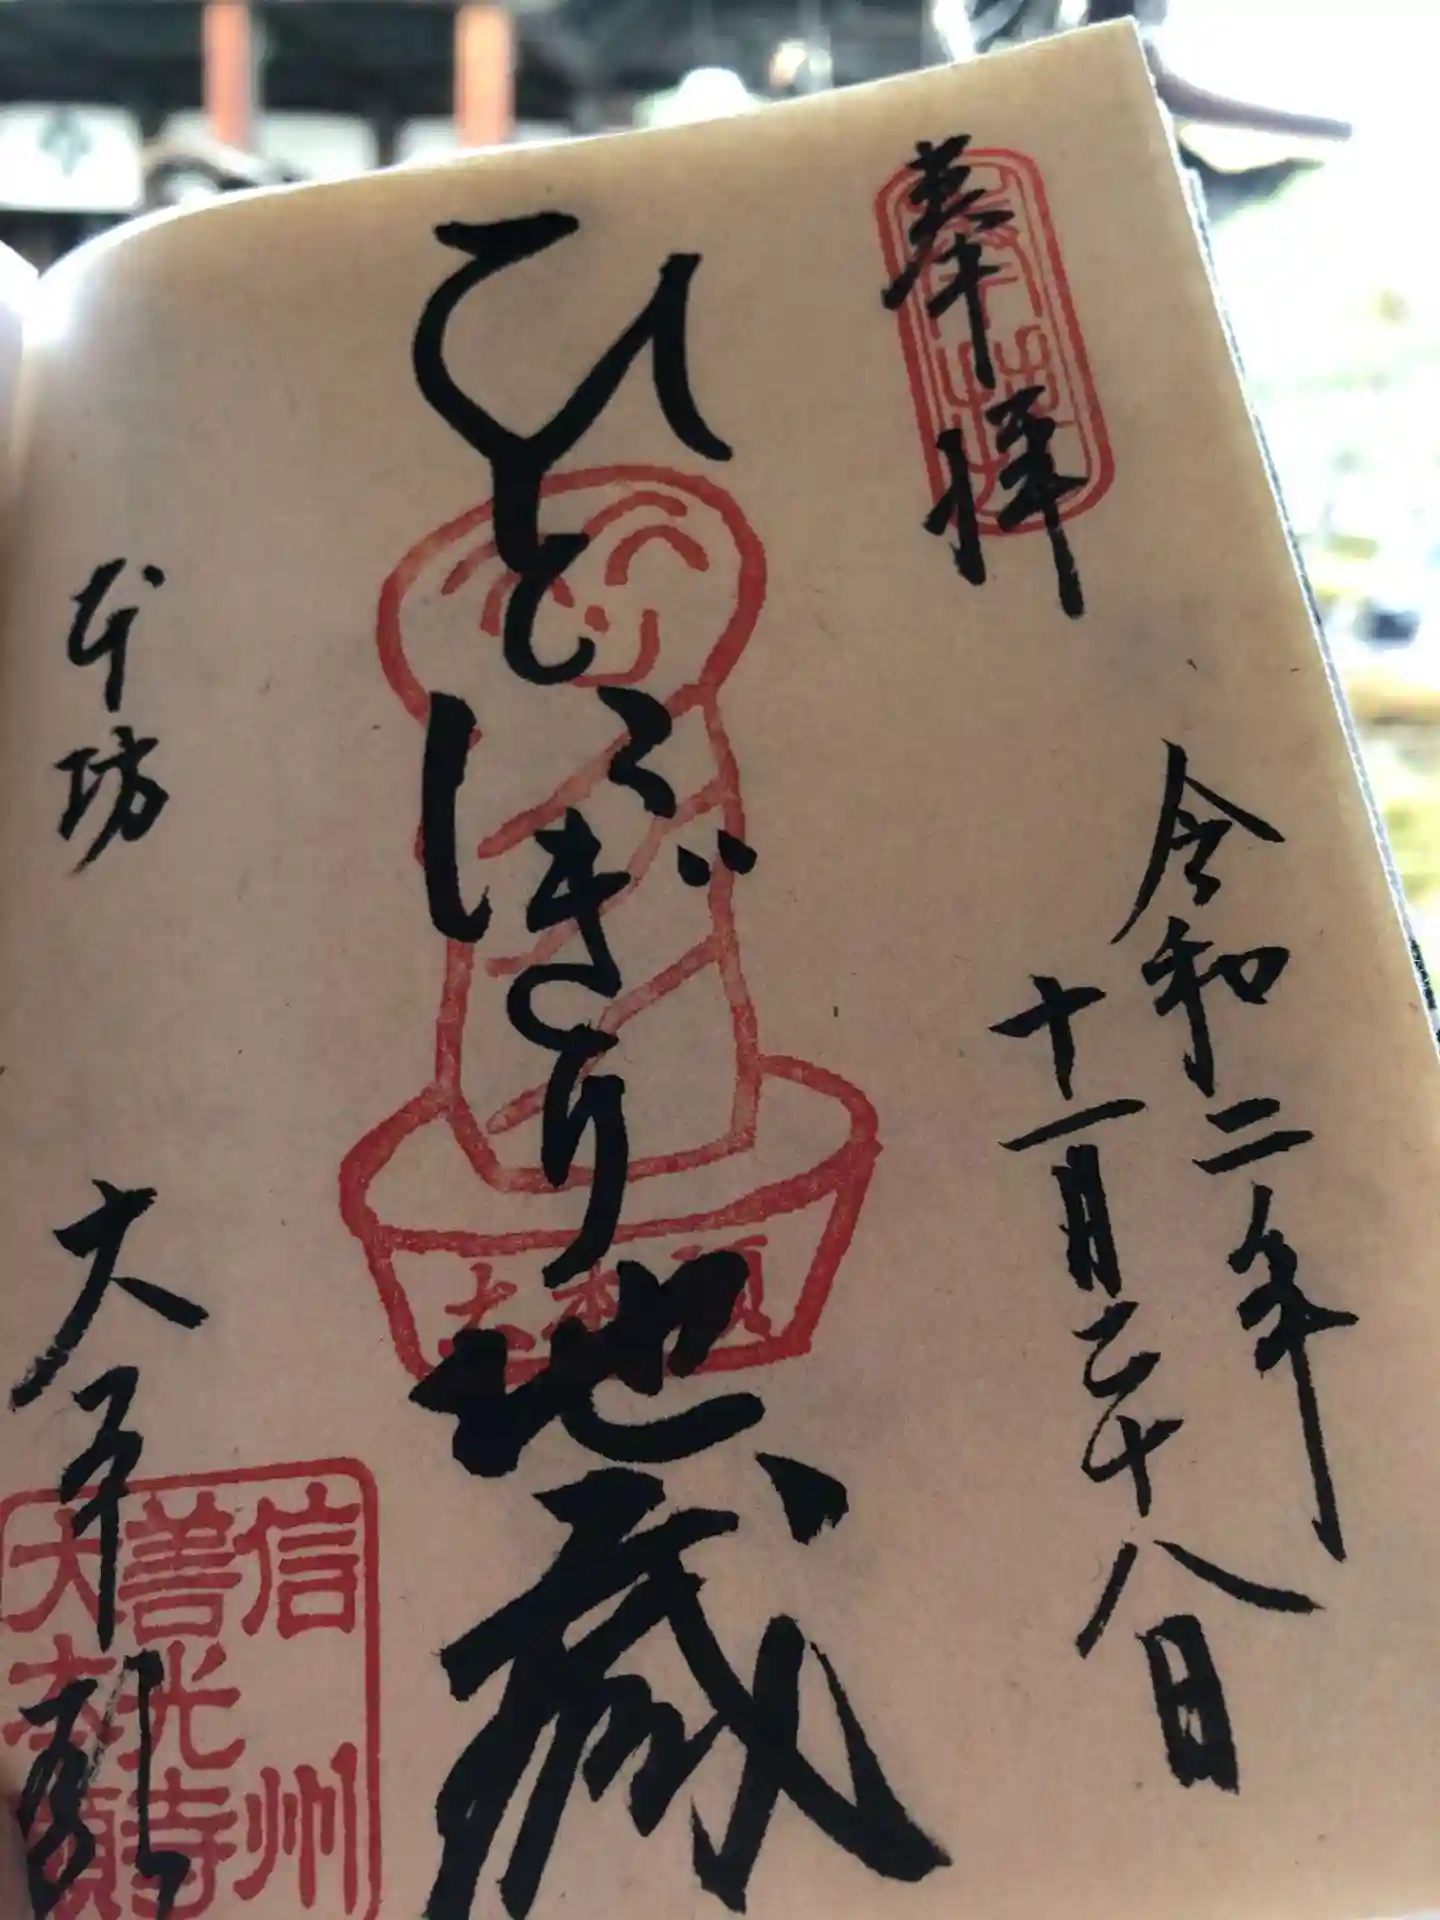 奉拝
令和二年
十一月二十八日
ひとにぎり地蔵
大本願
本坊
大本願
信州
善光寺
大本願